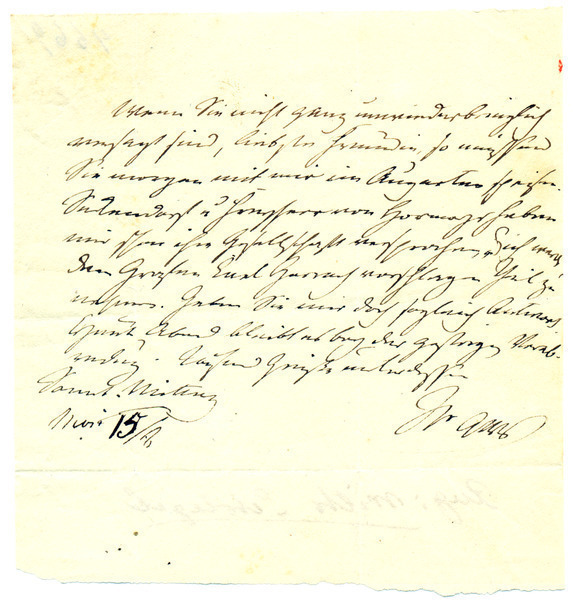 Wenn Sie nicht ganz unwiederbringlich
versagt sind, liebster Freundin, so müssen
Sie morgen mit mir im Augarten speisen.
u Freyherr von Hormayr haben
mir schon ihre Gesellschaft versprochen, u ich werde
dem Grafen Carl Harrach vorschlagen Theil zu
nehmen. Geben Sie mir doch sogleich Antwort
Heute Abend bleibt es bey der gestrigen Verab-
redung. Tausend Grüße unterdessen
Sonnt. Mittag
15/
Ihr